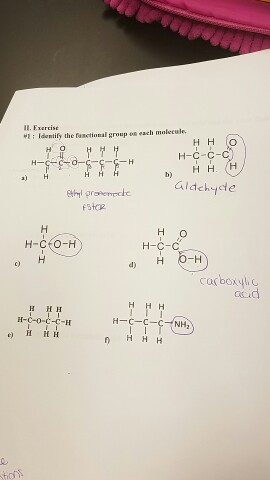 II. Exercise
#1 : Identify the functional group on each molecule.
H O H H H
H-C-C-O-C-C-C-H
H H H H
a)
ethyl propanoate
ESTER
H H O
H-C-C-C
H H H
b)
aldehyde
H
H-C-O-H
H
c)
H O
H-C-C
H O-H
d)
carboxylic
acid
H H H
H-C-O-C-C-H
H H H
e)
H H H
H-C-C-C-NH₂
H H H
f)